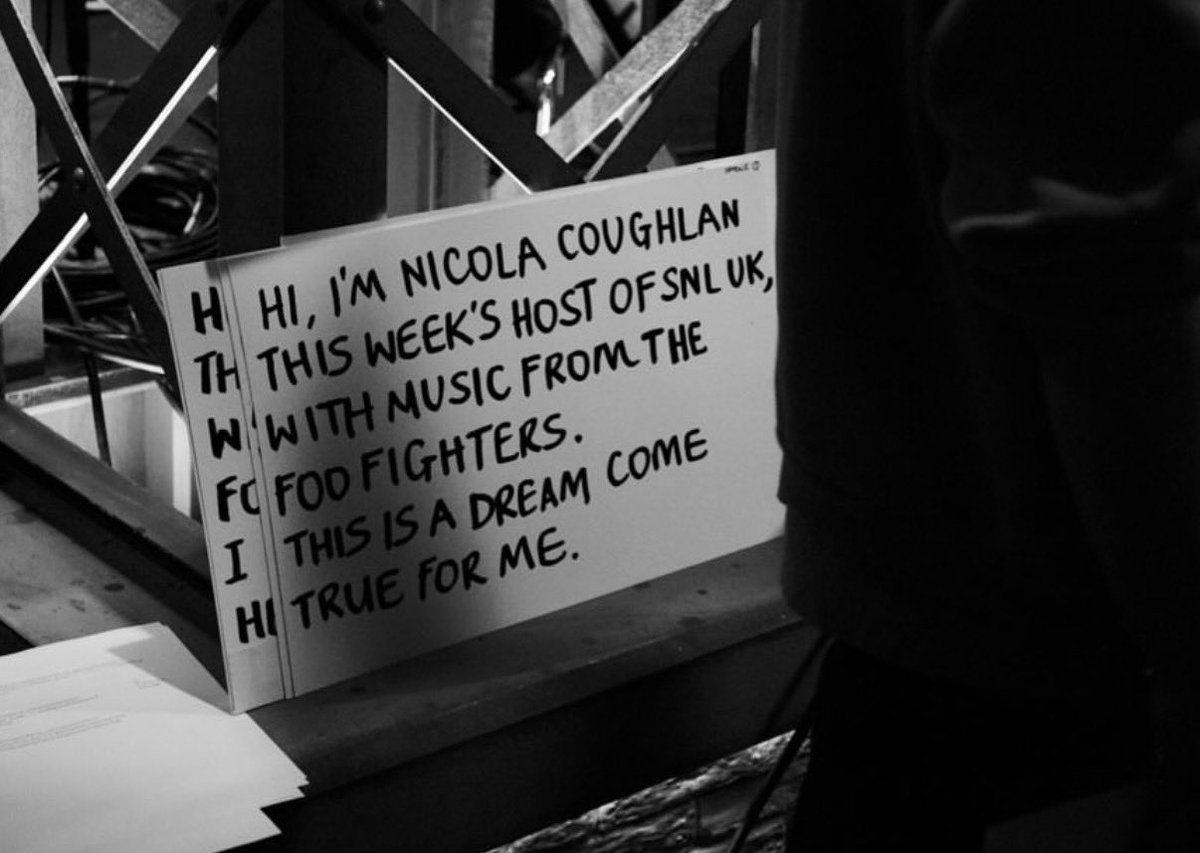 HI, I'M NICOLA COUGHLAN
THIS WEEK'S HOST OF SNL UK,
WITH MUSIC FROM THE
FOO FIGHTERS.
THIS IS A DREAM COME
TRUE FOR ME.
H
TH
W
FO
I